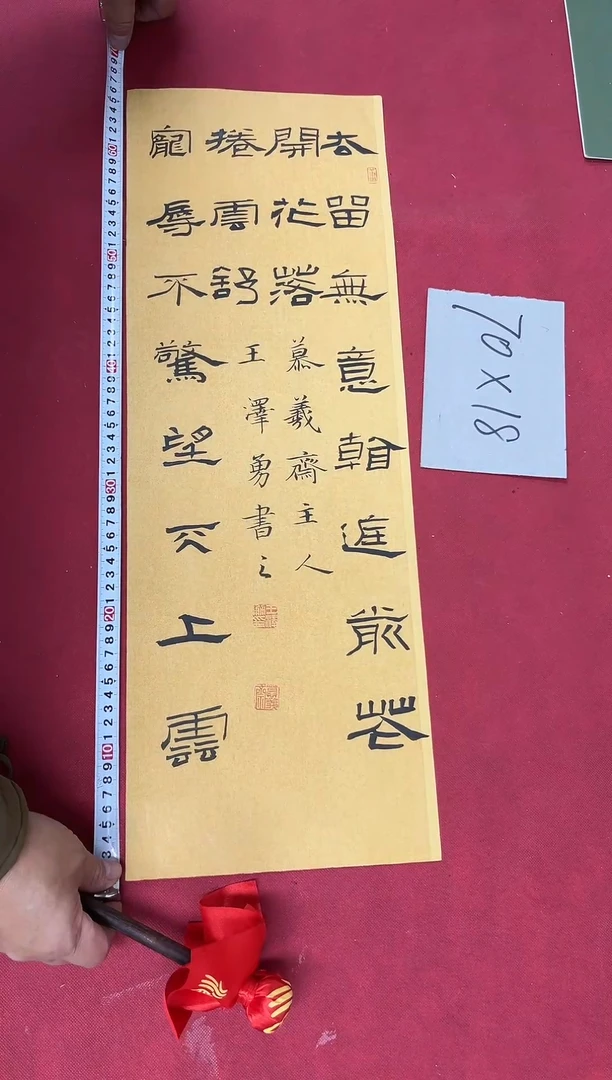 去留無意看庭前花
開花落
寵辱不驚望天上雲
捲雲舒
慕羲齋主人
王澤勇書之
70×18